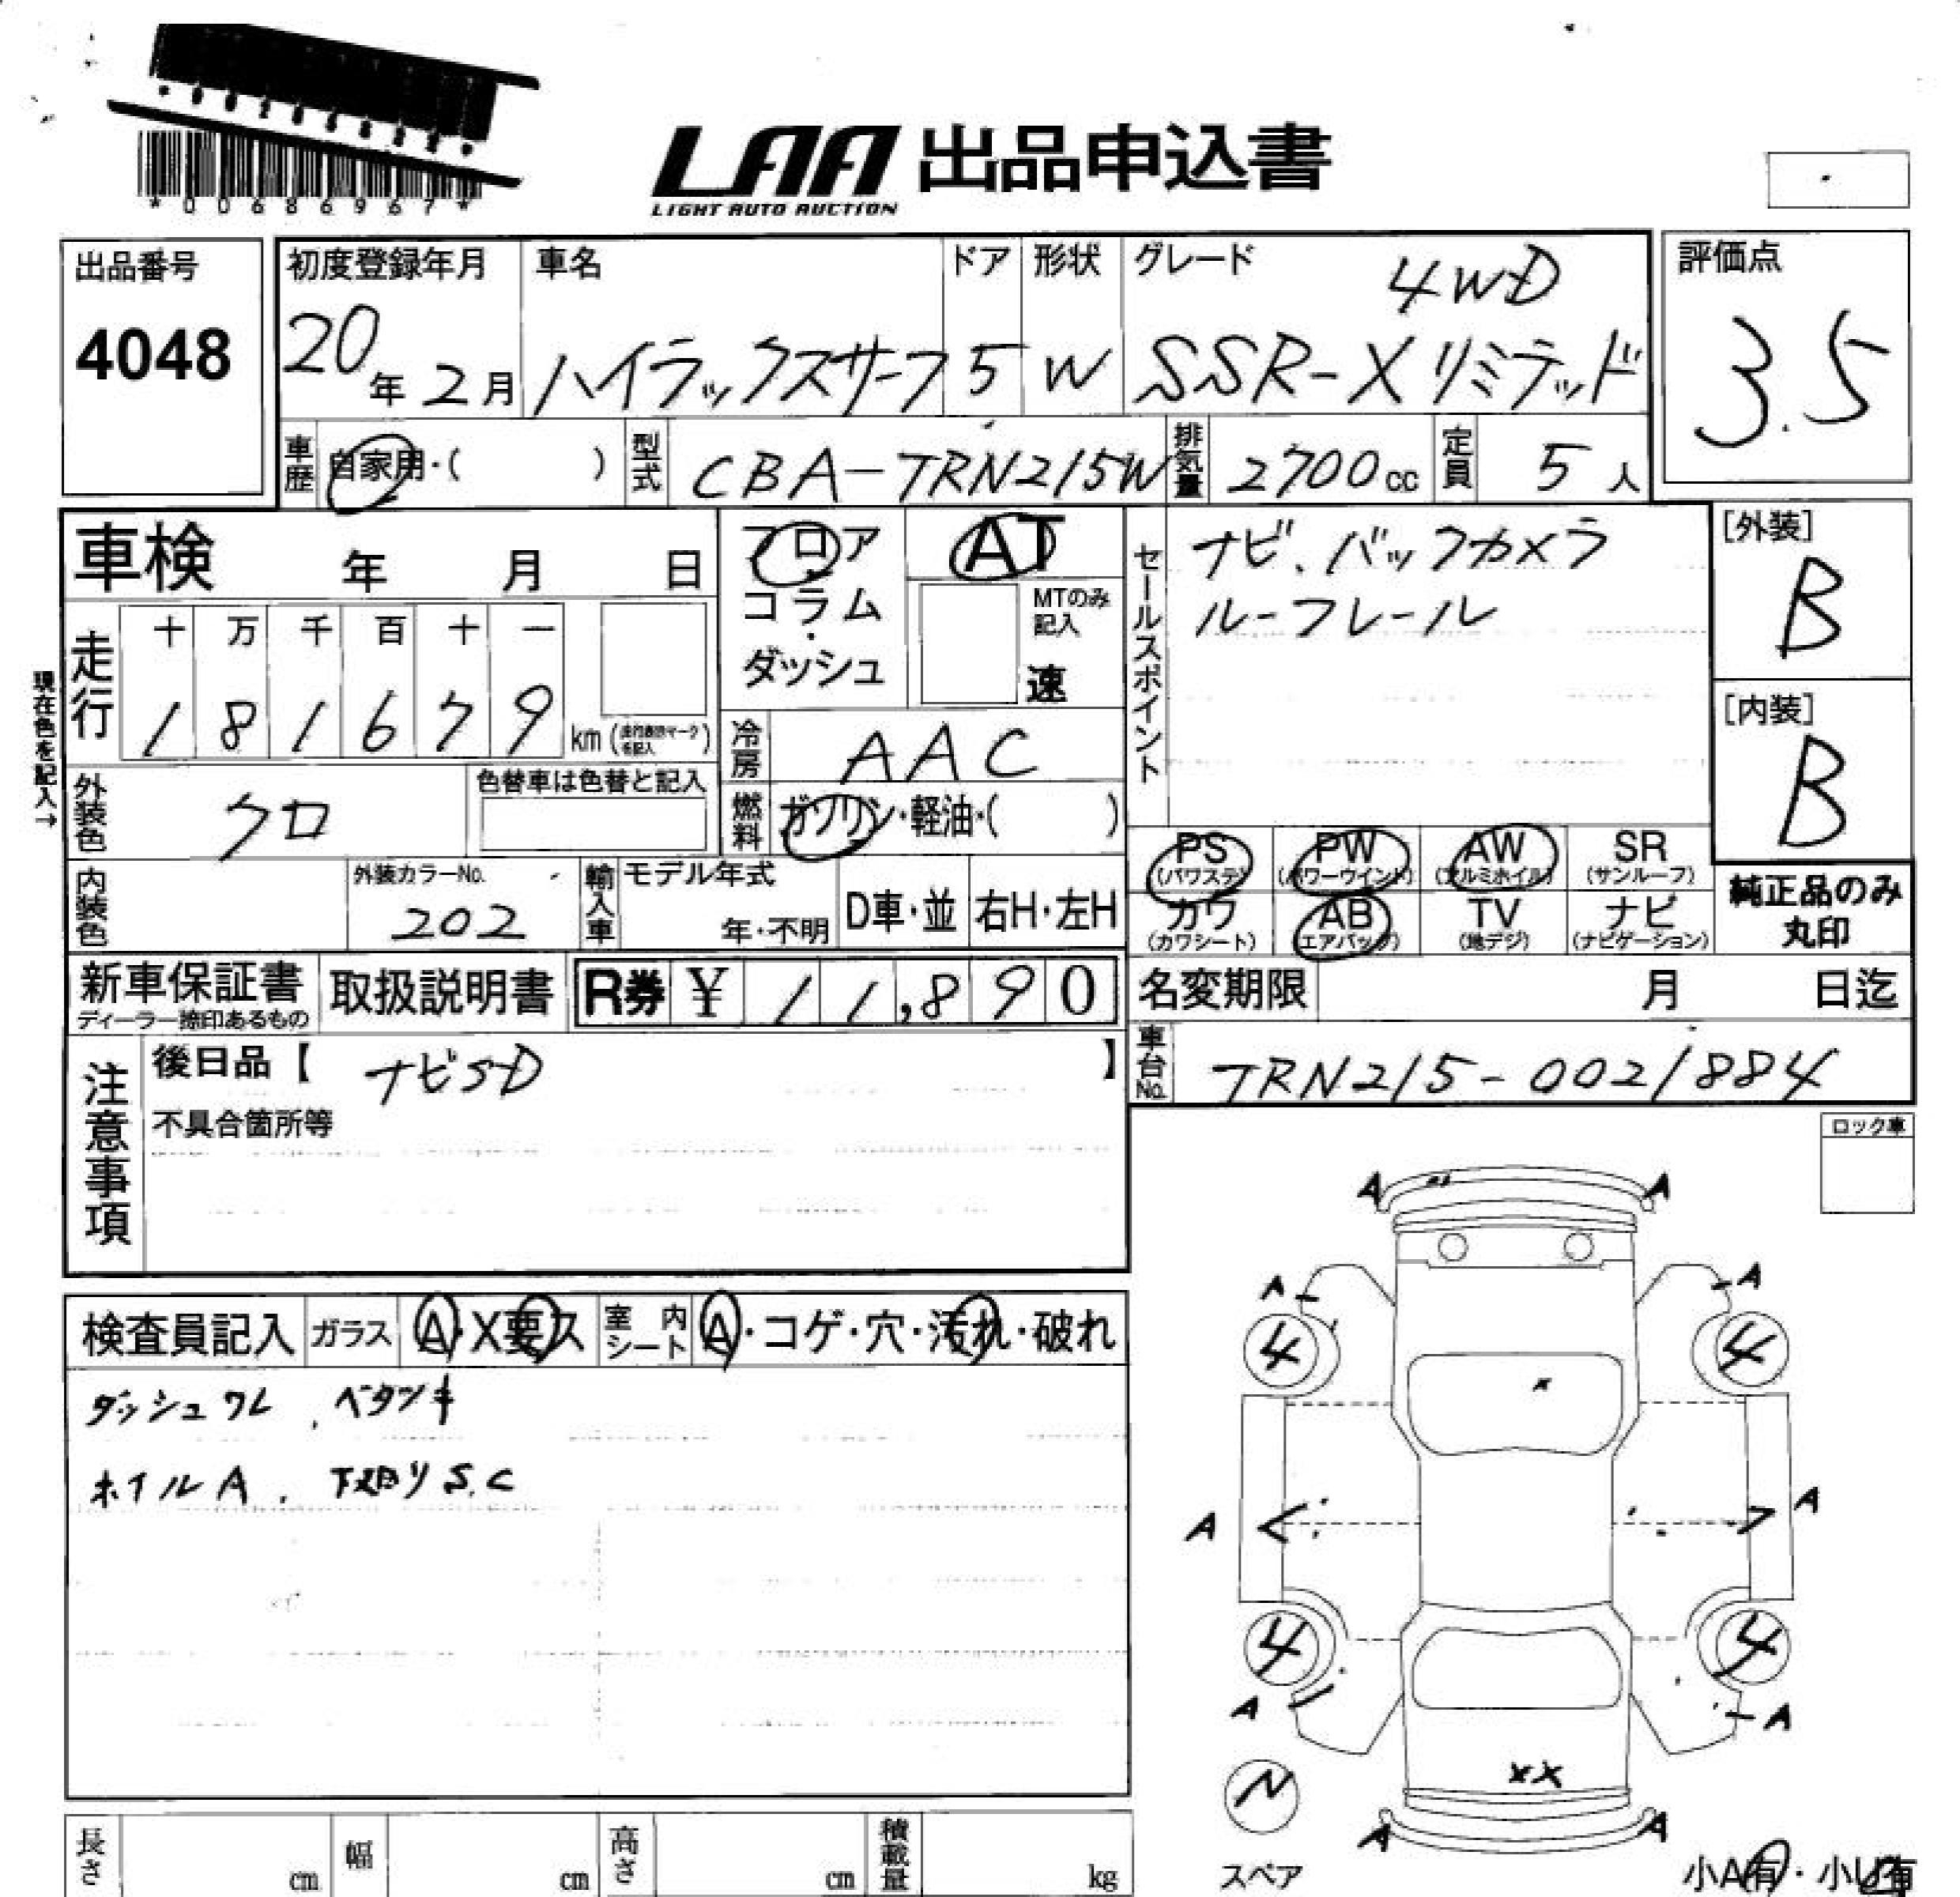 *00686967*
LAA 出品申込書
LIGHT AUTO AUCTION
出品番号
4048
初度登録年月
20年2月
車名
ハイラックスサーフ
ドア
5
形状
W
グレード
4WD
SSR-Xリミテッド
評価点
3.5
車歴 自家用・( )
型式 CBA-TRN215W
排気量 2700cc
定員 5人
車検 年 月 日
フロア・コラム・ダッシュ
AT
MTのみ記入
速
セールスポイント
ナビ、バックカメラ
ルーフレール
[外装]
B
[内装]
B
現在色を記入→
走行
十 万 千 百 十 一
1 8 1 6 7 9 km
冷房 AAC
外装色 クロ
色替車は色替と記入
燃料 ガソリン・軽油・( )
内装色
外装カラーNo.
202
輸入車
モデル年式
年・不明
D車・並
右H・左H
PS (パワステ)
PW (パワーウインド)
AW (アルミホイル)
SR (サンルーフ)
カワ (カワシート)
AB (エアバッグ)
TV (地デジ)
ナビ (ナビゲーション)
純正品のみ
丸印
新車保証書
ディーラー捺印あるもの
取扱説明書
R券 ¥ 11,890
名変期限 月 日迄
車台No. TRN215-0021884
注意事項
後日品【 ナビSD 】
不具合箇所等
ロック車
検査員記入
ガラス A・X要ス
室内シート A・コゲ・穴・汚れ・破れ
ダッシュワレ、ベタツキ
ホイルA、下廻りS.C
A A
A A
4 4
X
A A
4 4
A A
XX
N
スペア
A A
小A有・小U有
長さ cm
幅 cm
高さ cm
積載量 kg